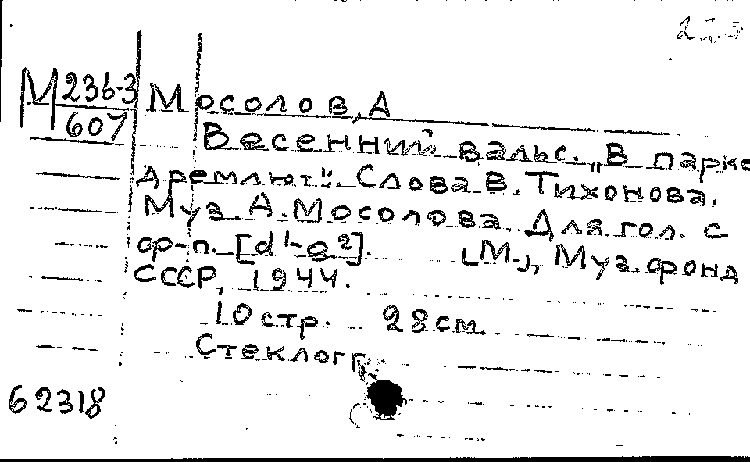 М 236-3
607
Мосолов, А
Весенний вальс. „В парке
дремлют". Слова В. Тихонова.
Муз. А. Мосолова. Для гол. с
ф-п. [d¹-g²]. [М.], Музфонд
СССР, 1944.
10 стр. 28 см.
Стеклогр.
62318